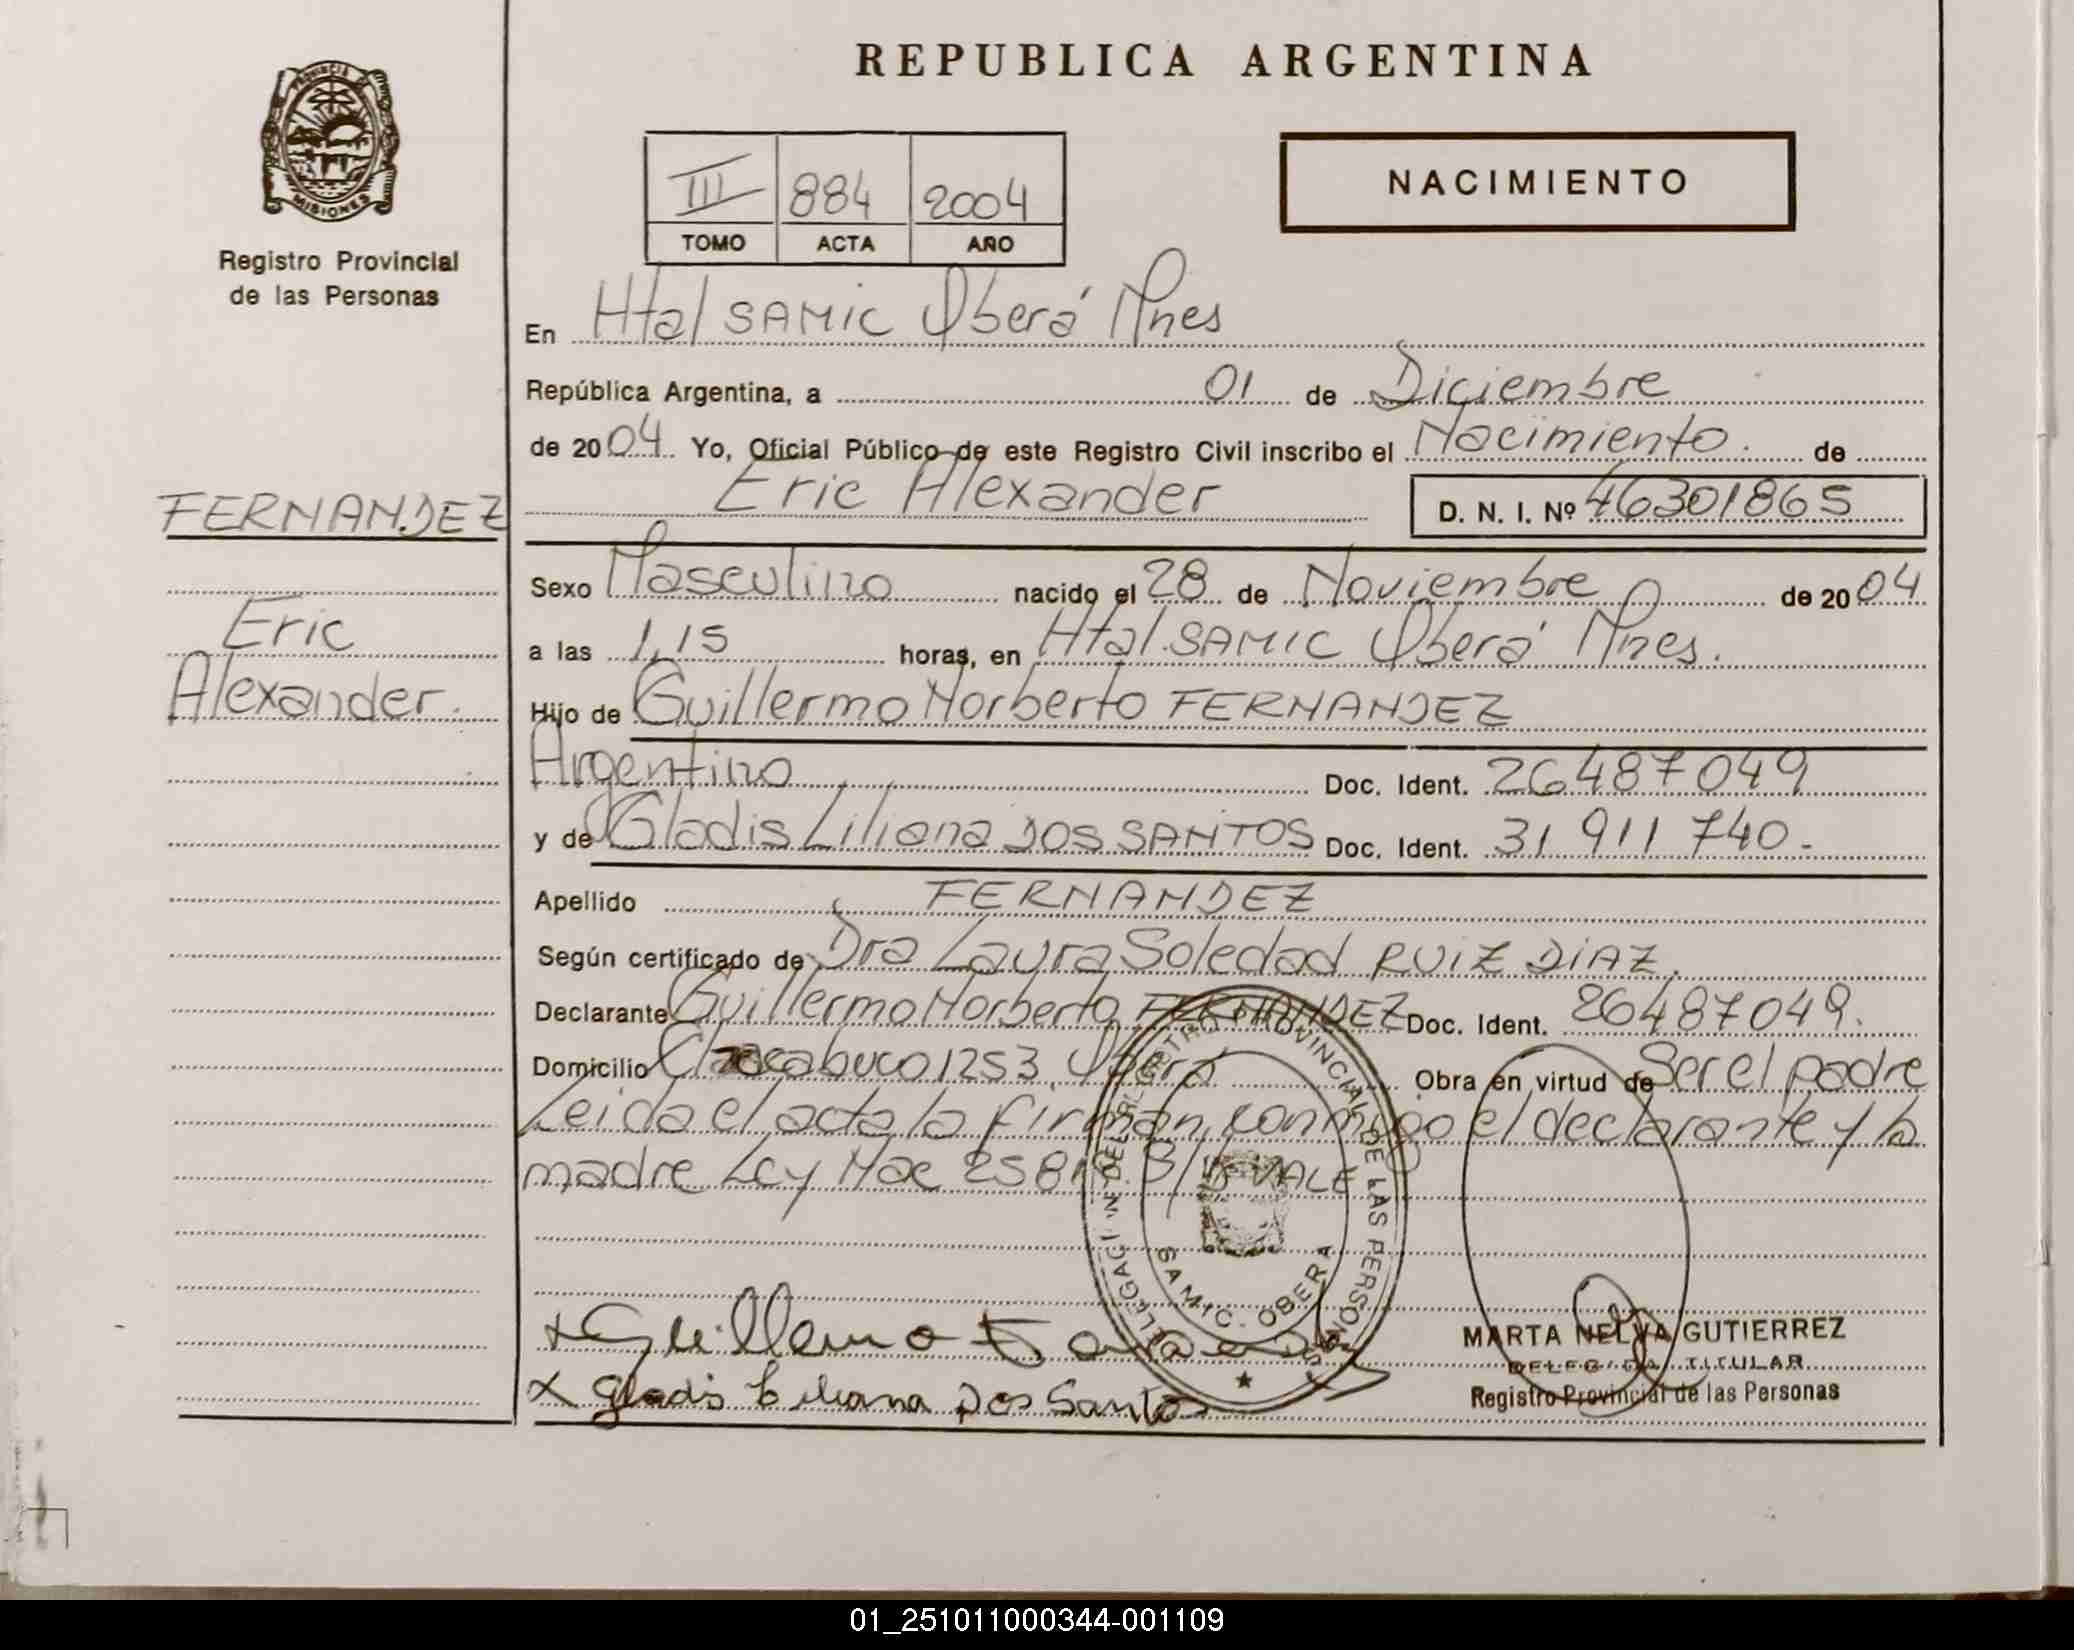 REPUBLICA ARGENTINA
PROVINCIA DE
MISIONES
Registro Provincial
de las Personas
III 884 2004
TOMO ACTA AÑO
NACIMIENTO
En Htal SAMIC Oberá Mnes
República Argentina, a 01 de Diciembre
de 2004. Yo, Oficial Público de este Registro Civil inscribo el Nacimiento. de
Eric Alexander D. N. I. Nº 46301865
FERNANDEZ
Eric
Alexander.
Sexo Masculino nacido el 28 de Noviembre de 2004
a las 1,15 horas, en Htal. SAMIC Oberá Mnes.
Hijo de Guillermo Norberto FERNANDEZ
Argentino Doc. Ident. 26487049
y de Gladis Liliana DOS SANTOS Doc. Ident. 31 911 740.
Apellido FERNANDEZ
Según certificado de Dra Laura Soledad RUIZ DIAZ.
Declarante Guillermo Norberto FERNANDEZ Doc. Ident. 26487049.
Domicilio Chacabuco 1253, Oberá Obra en virtud de Ser el padre
Leida el acta la firman conmigo el declarante y la
madre Ley Nac VALE
REGISTRO PROVINCIAL DE LAS PERSONAS
SAMIC - OBERA
Guillermo
x Gladis Liliana Dos Santos
MARTA NELVA GUTIERREZ
DELEGADA TITULAR
Registro Provincial de las Personas
01_251011000344-001109